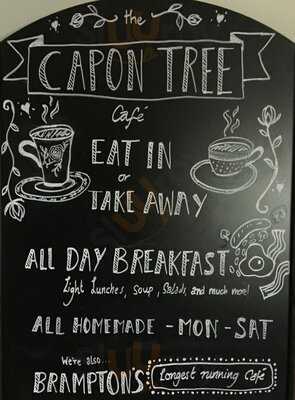 the
CAPON TREE
Café
EAT IN
or
TAKE AWAY
ALL DAY BREAKFAST
Light Lunches, Soup, Salads, and much more!
ALL HOMEMADE - MON - SAT
We're also...
BRAMPTON'S Longest running Café